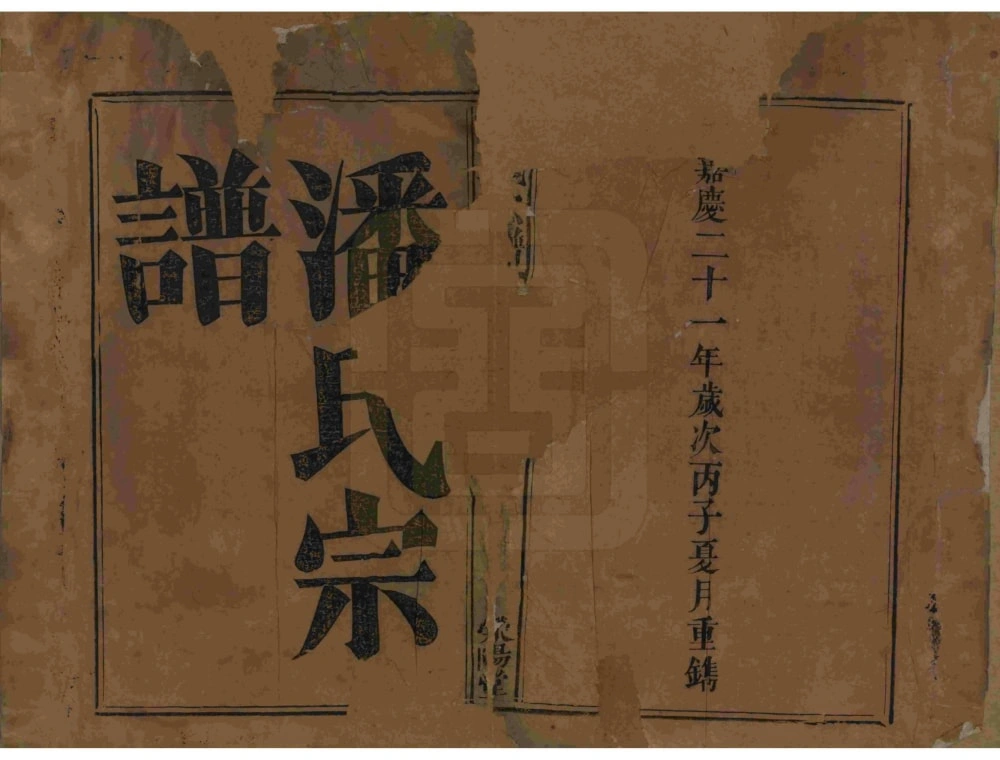 嘉慶二十一年歲次丙子夏月重鐫
滎陽堂
潘氏宗
譜